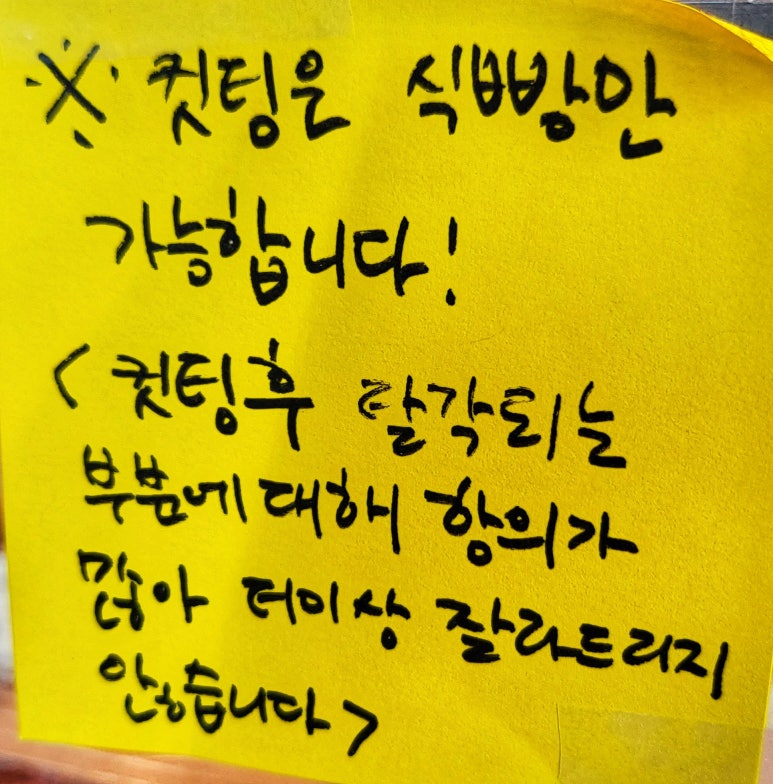 ※ 컷팅은 식빵만
가능합니다!
<컷팅후 탈각되는
부분에 대해 항의가
많아 더이상 잘라드리지
않습니다>